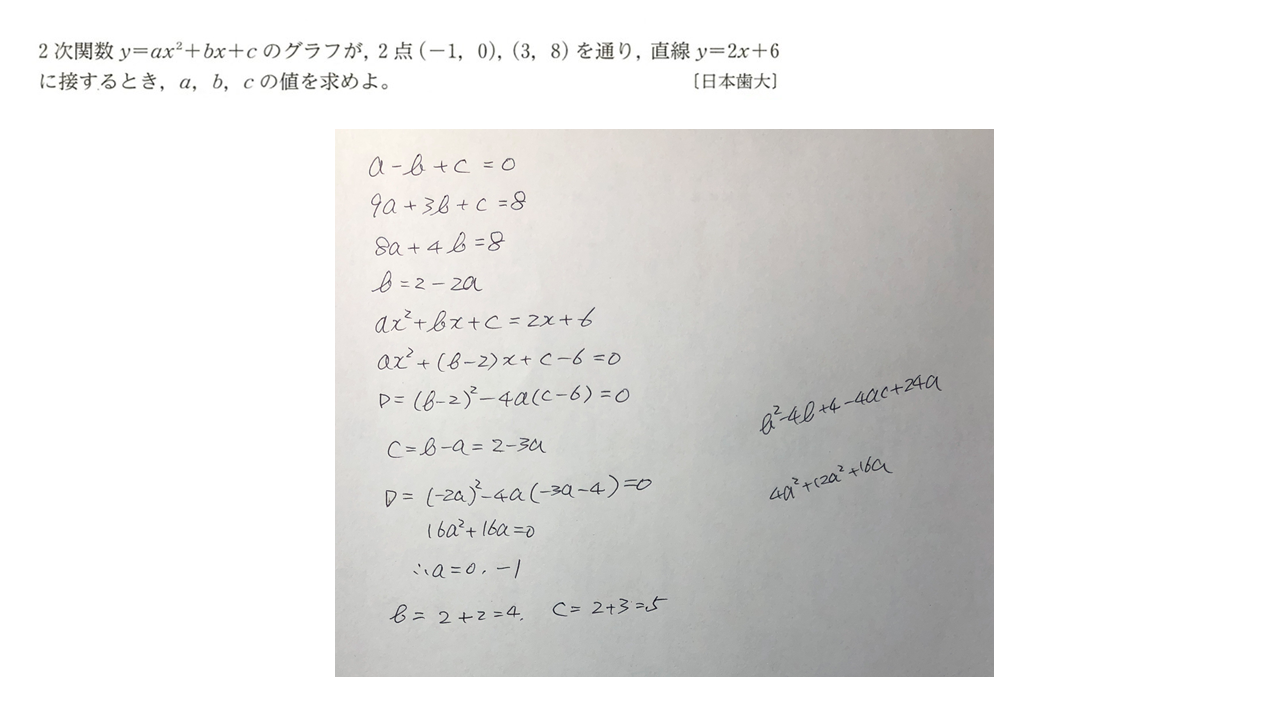 2次関数 y=ax²+bx+c のグラフが, 2点 (−1, 0), (3, 8) を通り, 直線 y=2x+6
に接するとき, a, b, c の値を求めよ。 〔日本歯大〕
a−b+c=0
9a+3b+c=8
8a+4b=8
b=2−2a
ax²+bx+c=2x+6
ax²+(b−2)x+c−6=0
D=(b−2)²−4a(c−6)=0
b²−4b+4−4ac+24a
c=b−a=2−3a
D=(−2a)²−4a(−3a−4)=0
4a²+12a²+16a
16a²+16a=0
∴a=0, −1
b=2+2=4, c=2+3=5